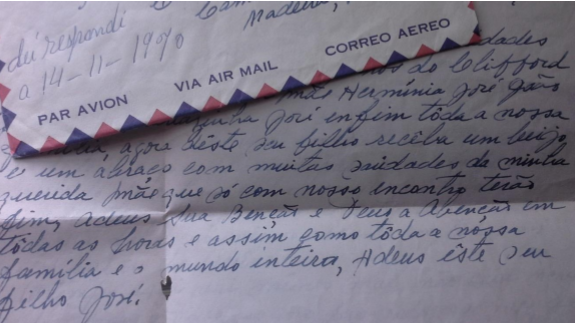 Madeira,
dei respondi
a 14-11-1970
PAR AVION
VIA AIR MAIL
CORREO AEREO
dades
nos do Clifford
Mãe Hermínia José João
José enfim tôda a nossa
agora dêste seu filho receba um beijo
e um abraço com muitas saudades da minha
querida Mãe que só com nosso encontro terão
fim, Adeus Sua Benção e Deus a Abençõe em
tôdas as horas e assim como tôda a nossa
família e o mundo inteiro, Adeus êste seu
filho José.